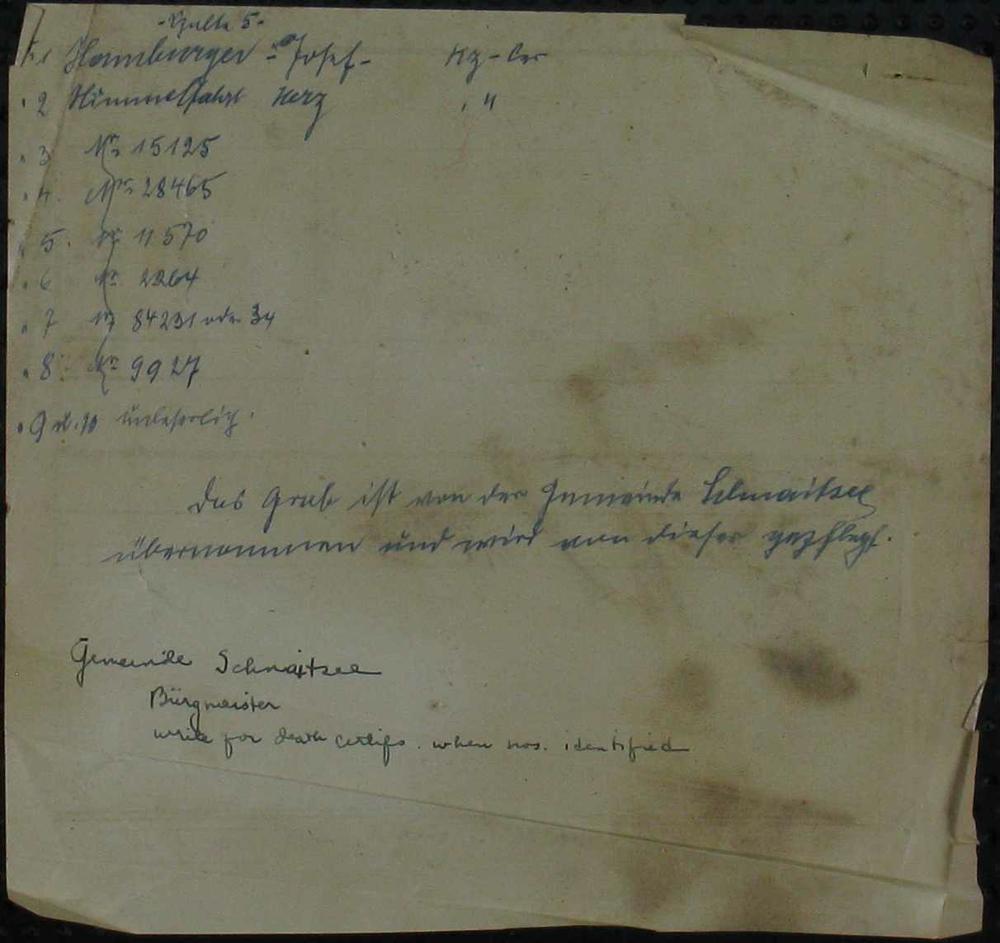 - Spalte 5 -
Nr 1 Hamburger - Josef - Kz-ler
" 2 Himmelfahrt Herz , "
" 3 Nr. 15125
" 4. Nr. 28465
" 5. Nr. 11570
" 6 Nr. 2264
" 7 Nr 84231 oder 34
" 8. Nr. 9927
" 9 u. 10 unleserlich.
Das Grab ist von der Gemeinde Schnaitsee
übernommen und wird von dieser gepflegt.
Gemeinde Schnaitsee
Bürgmeister
write for death certifs. when nos. identified